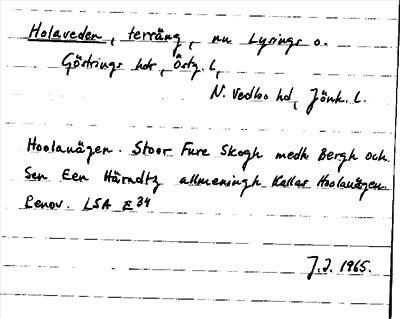 Holaveden, terräng, nu Lysings o.
Göstrings hdr, Östg. l,
N. Vedbo hd, Jönk. l.
Hoolawägen. Stoor Fure Skogh medh Bergh och
Sen Een Härndtz allmeningh Kallas Hoolawägen
Renov. LSA E 34
J.J. 1965.